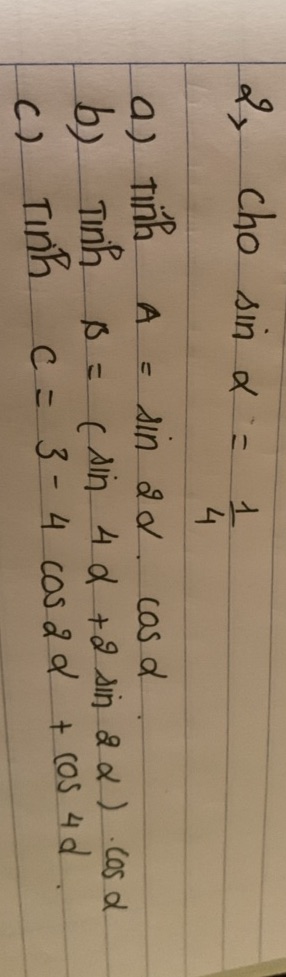 2, Cho sin α = 1/4
a) Tính A = sin 2α . cos α.
b) Tính B = (sin 4α + 2 sin 2α) . cos α
c) Tính C = 3 - 4 cos 2α + cos 4α.